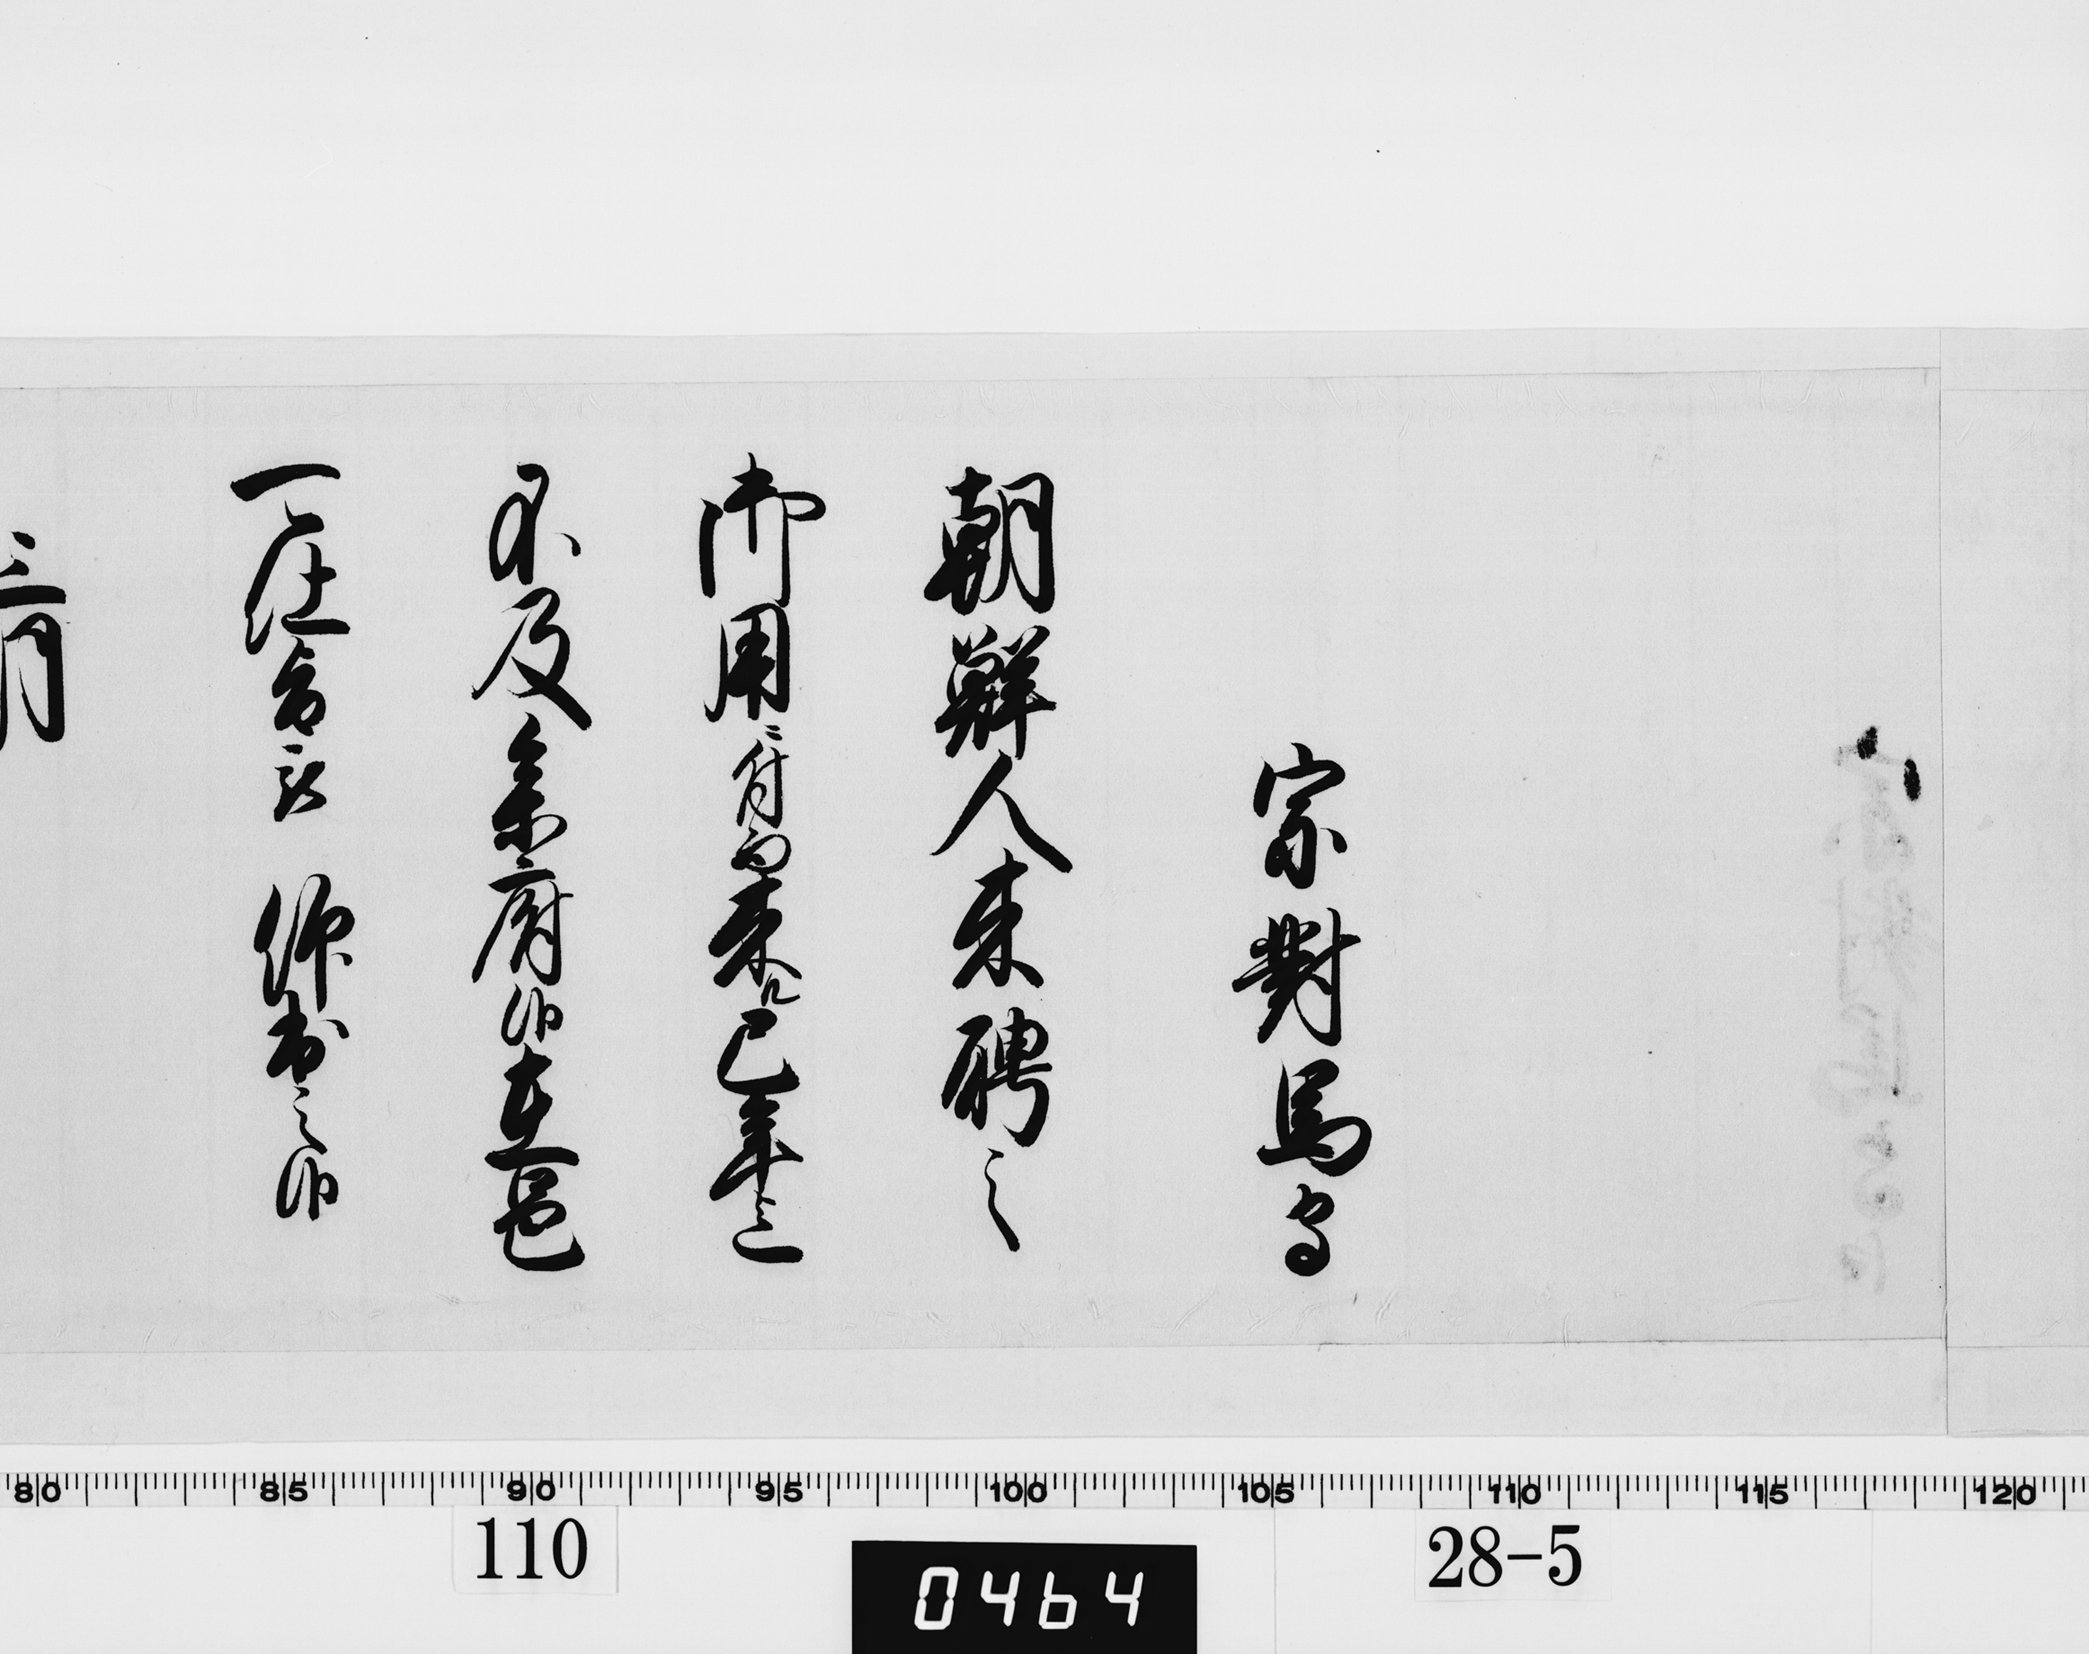 宗對馬守
朝鮮人来聘之
御用ニ付而来ル巳年迄
不及参府候在邑
可仕旨被仰出之候
三月
80 85 90 95 100 105 110 115 120
110
0464
28-5